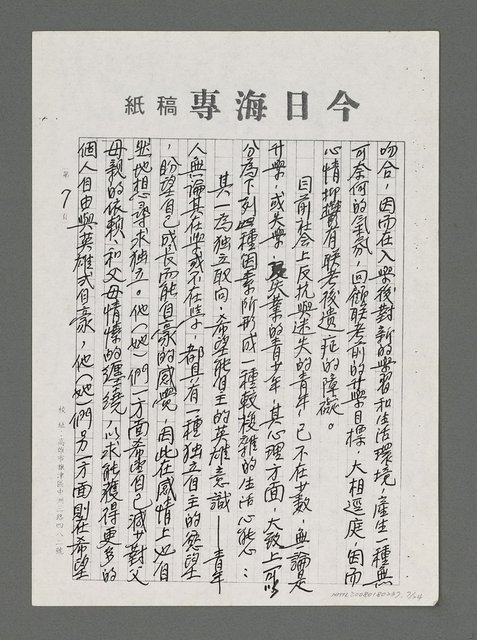 今日海專稿紙
吻合，因而在入學後對新的學習和生活環境，產生一種無
可奈何的氣氛，回顧聯考前的升學目標，大相逕庭，因而
心情抑鬱有聯考後遺症的障礙。
目前社會上反抗與迷失的青年，已不在少數，無論是
升學，或失學、失業的青少年，其心理方面，大致上可以
分為下列四種因素所形成一種較複雜的生活心態：
其一為獨立取向，希望能自主的英雄意識——青年
人無論其在學或不在學，都具有一種獨立自主的慾望
，盼望自己成長而能自豪的感覺，因此在感情上也自
然地想尋求獨立。他（她）們一方面希望自己減少對父
母親的依賴、和父母情愫的纏繞，以求能獲得更多的
個人自由與英雄式自豪，他（她）們另一方面則在希望
第7頁
校址：高雄市旗津區中洲三路四八二號
NMTL20080180237, 7/24